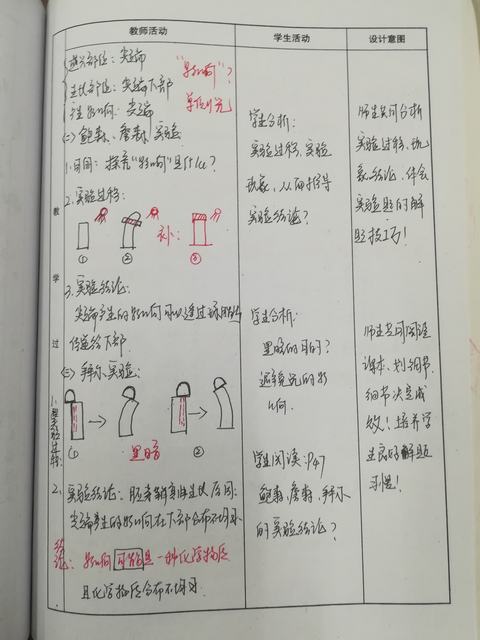 教师活动
学生活动
设计意图
感光部位：尖端
生长部位：尖端下部
产生"影响"：尖端
"影响"？
单侧光
(二) 鲍森·詹森实验
1. 目的：探究"影响"是什么？
2. 实验过程：
① ② 补： ③
3. 实验结论：
尖端产生的影响可以透过琼脂片
传递给下部
(三) 拜尔实验：
1. 实验过程
① 黑暗 ②
2、实验结论：胚芽鞘弯曲生长原因：
尖端产生的影响在下部分布不均匀
结论：影响可能是一种化学物质
且化学物质分布不均匀
教
学
过
学生分析：
实验过程、实验
现象、从而推得
实验结论？
学生分析：
黑暗的目的？
避免光的影
响
学生阅读：P47
鲍森·詹森、拜尔
的实验结论？
师生共同分析
实验过程、现
象、结论、体会
实验题的解
题技巧！
师生共同阅读
课本、划细节、
细节决定成
效！培养学
生良好解题
习惯！